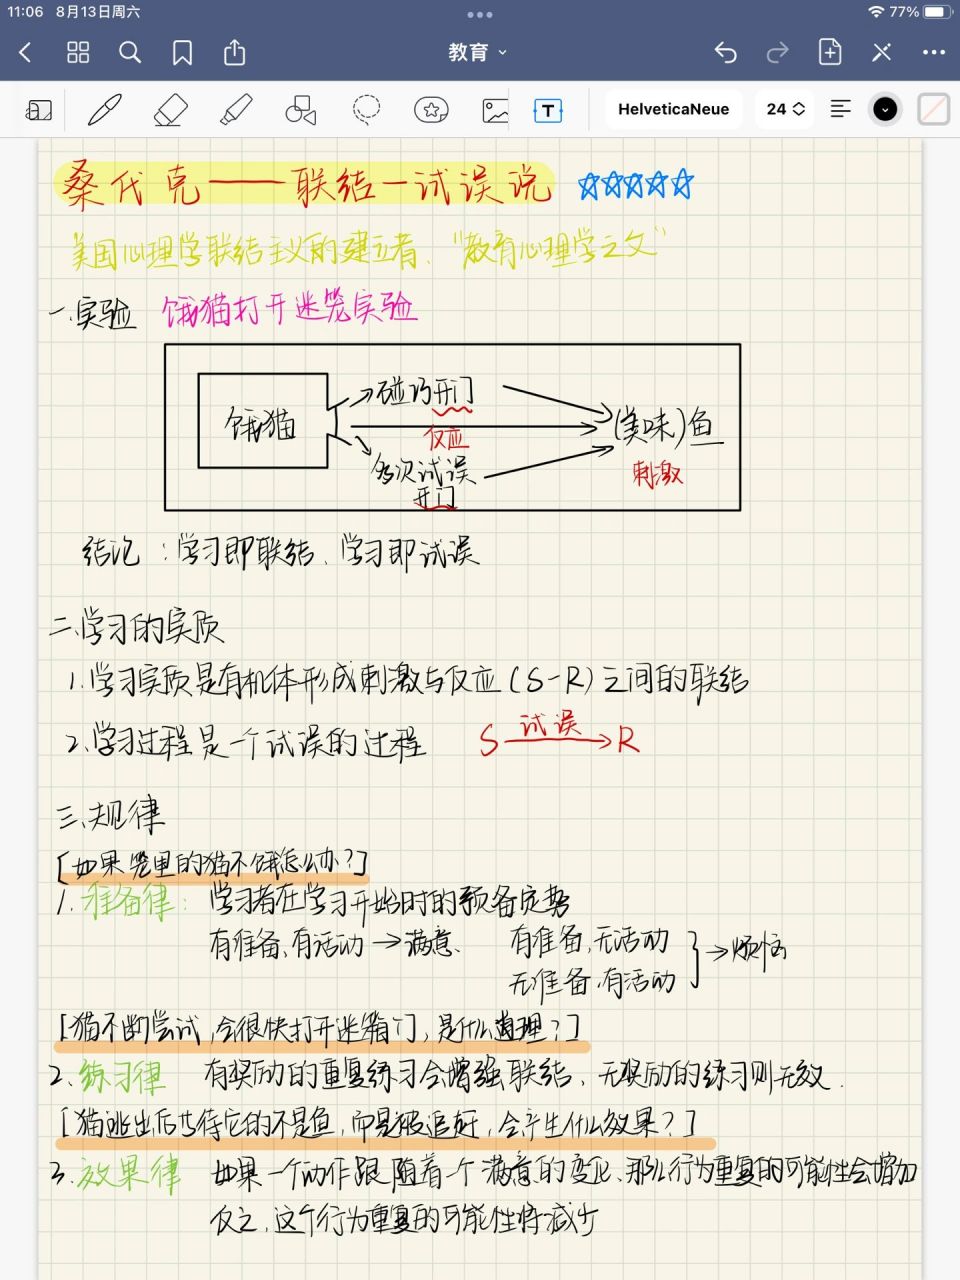 11:06 8月13日周六
77%
教育
HelveticaNeue
24
桑代克——联结—试误说 ☆☆☆☆☆
美国心理学联结主义的建立者、“教育心理学之父”
一.实验 饿猫打开迷笼实验
碰巧开门
饿猫
反应
(美味)鱼
多次试误
开门
刺激
结论：学习即联结、学习即试误
二.学习的实质
1.学习实质是有机体形成刺激与反应(S-R)之间的联结
2.学习过程是一个试误的过程 S 试误→ R
三.规律
[如果笼里的猫不饿怎么办?]
1.准备律：学习者在学习开始时的预备定势
有准备,有活动→满意、 有准备,无活动
无准备,有活动 }→烦恼
[猫不断尝试,会很快打开迷箱门,是什么道理?]
2.练习律 有奖励的重复练习会增强联结、无奖励的练习则无效.
[猫逃出后等待它的不是鱼,而是被追赶,会产生什么效果?]
3.效果律 如果一个动作跟随着一个满意的变化、那么行为重复的可能性会增加
反之、这个行为重复的可能性将减少